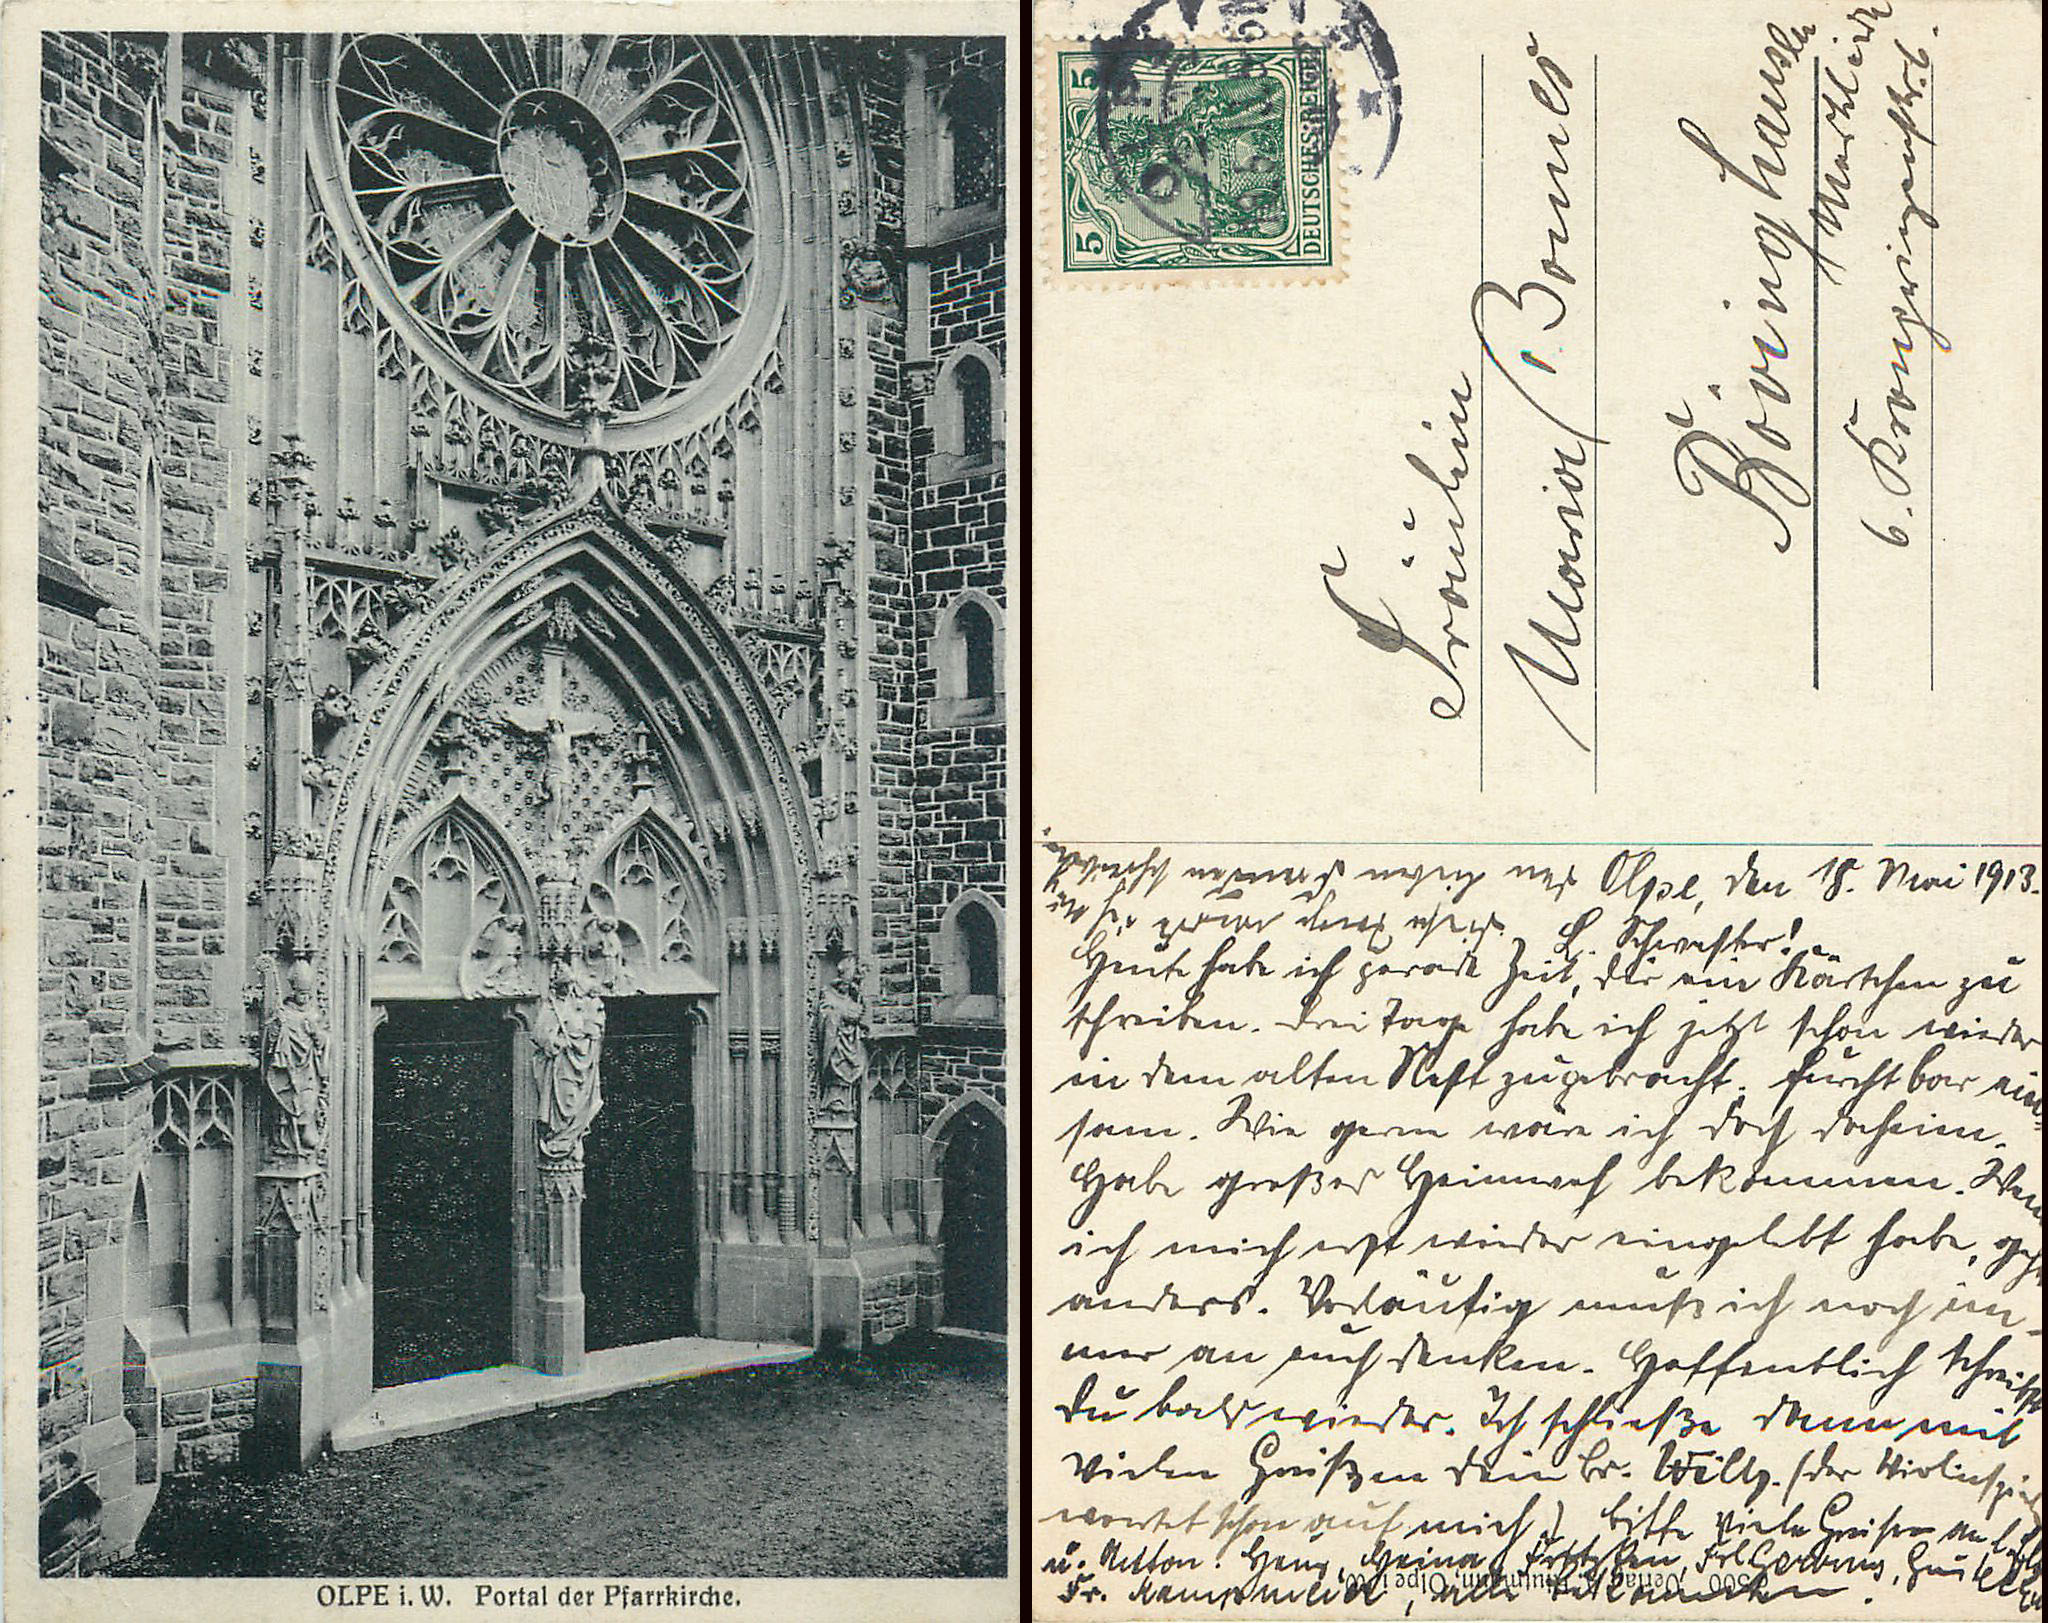 OLPE i. W. Portal der Pfarrkirche.
5
5
DEUTSCHES REICH
Fräulein
Maria
Böringhausen
Kronprinzenstr. 6.
Olpe, den 18. Mai 1913.
L. Schwester!
Heute habe ich gerade Zeit, dir ein Kärtchen zu
schreiben. Drei Tage habe ich jetzt schon wieder
in dem alten Nest zugebracht. Furchtbar ein-
sam. Wie gerne wäre ich doch daheim.
Habe großes Heimweh bekommen. Wenn
ich mich erst wieder eingelebt habe, geht
anders. Vorläufig muß ich noch im-
mer an euch denken. Hoffentlich schreibst
du bald wieder. Ich schließe denn mit
vielen Grüßen dein Br. Willy. (der Violinspieler
wartet schon auf mich) bitte viele Grüße an
u. Anton. Heinr.
Fr. alle Bekannten.
Verlag Olpe i. W.